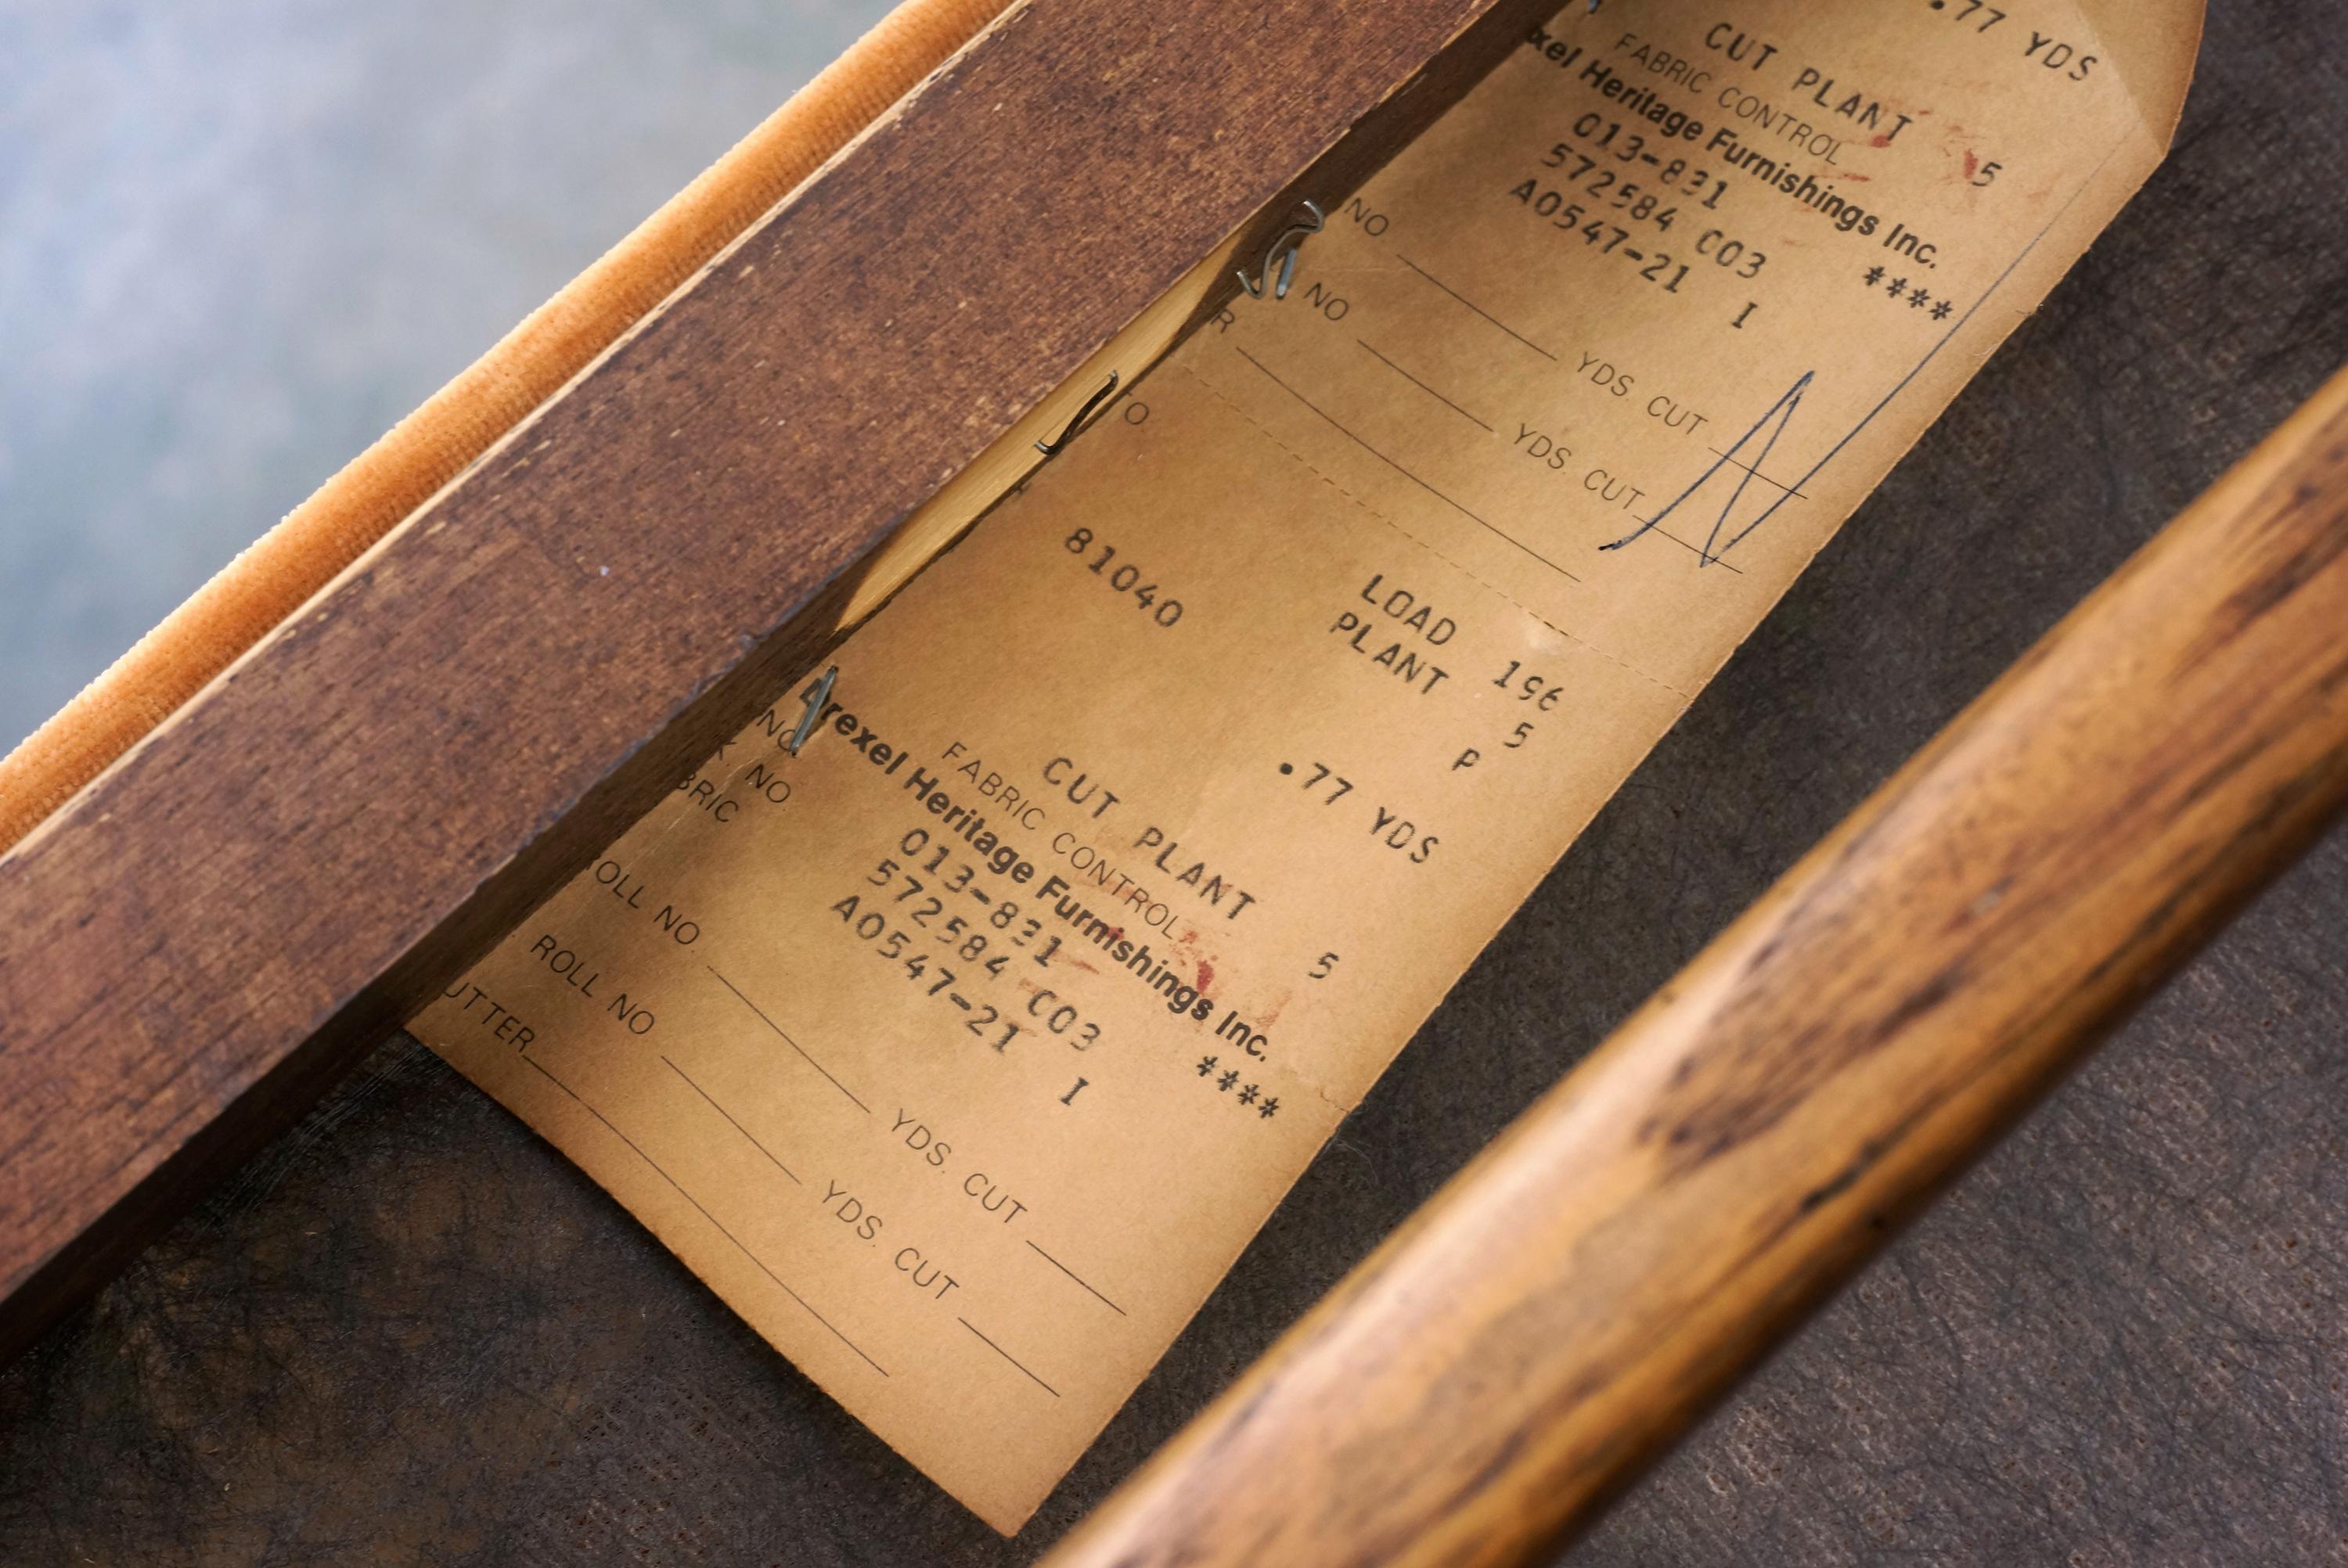 .77 YDS
CUT PLANT 5
FABRIC CONTROL
xel Heritage Furnishings Inc.
013-831
572584 C03 ****
A0547-21 I
NO
YDS. CUT
NO
YDS. CUT
R
TO
81040
LOAD 196
PLANT 5
P
.77 YDS
CUT PLANT 5
FABRIC CONTROL
drexel Heritage Furnishings Inc.
NO. 013-831
K. NO. 572584 C03 ****
BRIC A0547-21 I
OLL NO. YDS. CUT
ROLL NO YDS. CUT
UTTER